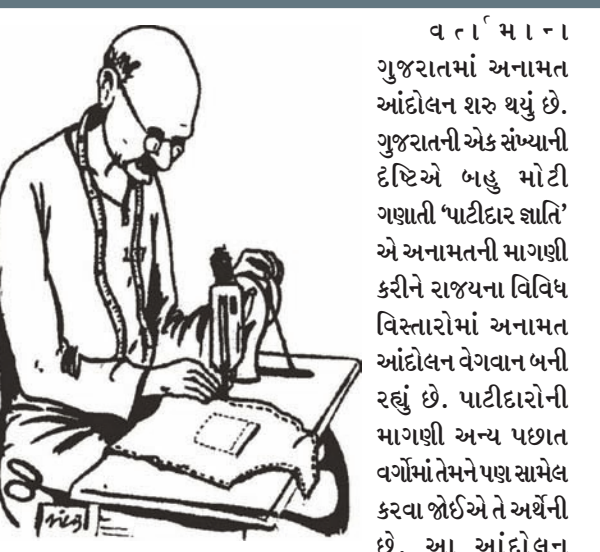 વર્તમાના
ગુજરાતમાં અનામત
આંદોલન શરુ થયું છે.
ગુજરાતની એક સંખ્યાની
દૃષ્ટિએ બહુ મોટી
ગણાતી ‘પાટીદાર જ્ઞાતિ’
એ અનામતની માગણી
કરીને રાજયના વિવિધ
વિસ્તારોમાં અનામત
આંદોલન વેગવાન બની
રહ્યું છે. પાટીદારોની
માગણી અન્ય પછાત
વર્ગોમાં તેમને પણ સામેલ
કરવા જોઈએ તે અર્થેની
છે. આ આંદોલન